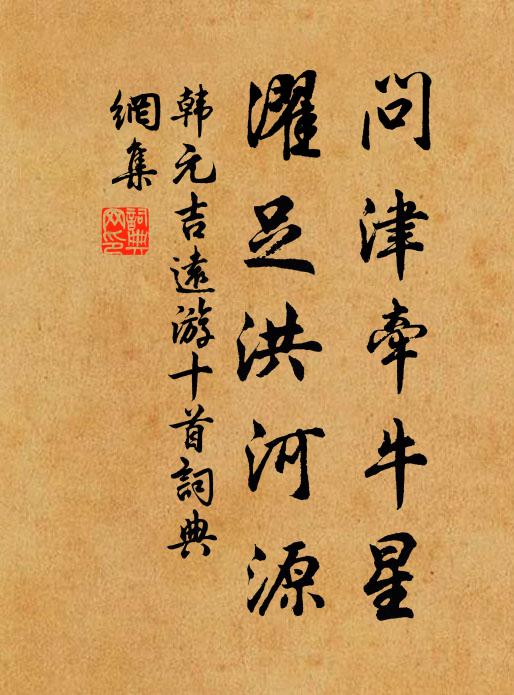 问津牵牛星
濯足洪河源
韩元吉远游十首词典
網集
詞典
网印